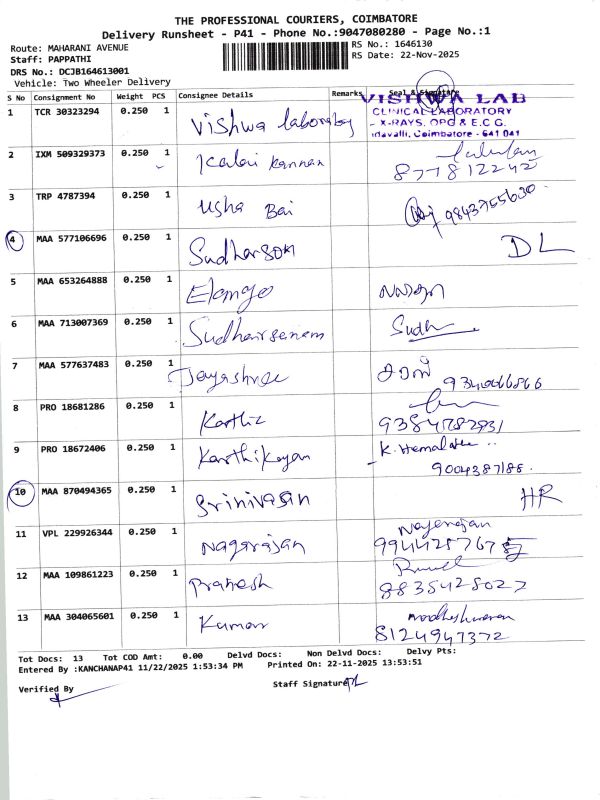 THE PROFESSIONAL COURIERS, COIMBATORE
Delivery Runsheet - P41 - Phone No.:9047080280 - Page No.:1
Route: MAHARANI AVENUE
RS No.: 1646130
Staff: PAPPATHI
RS Date: 22-Nov-2025
DRS No.: DCJB164613001
Vehicle: Two Wheeler Delivery
S No Consignment No Weight PCS Consignee Details Remarks Seal & Signature
1 TCR 30323294 0.250 1 Vishwa laboratoy
VISHWA LAB
CLINICAL LABORATORY
- X-RAYS, OPG & E.C.G.
Coimbatore - 641 041
2 IXM 509329373 0.250 1 Kalai Kannan
877812242
3 TRP 4787394 0.250 1 Usha Bai 9843755630
4 MAA 577106696 0.250 1 Sudharson DL
5 MAA 653264888 0.250 1 Elango
6 MAA 713007369 0.250 1 Sudhairsenam Sudh
7 MAA 577637483 0.250 1 Jayashree
8 PRO 18681286 0.250 1 Karthic
9 PRO 18672406 0.250 1 Karthikeyan K. Hemalatha
9004387188.
10 MAA 870494365 0.250 1 Srinivasan HR
11 VPL 229926344 0.250 1 Nagarajan Nagarajan
12 MAA 109861223 0.250 1 Pranesh
8835428027
13 MAA 304065601 0.250 1 Kumar
8124947372
Tot Docs: 13 Tot COD Amt: 0.00 Delvd Docs: Non Delvd Docs: Delvy Pts:
Entered By :KANCHANAP41 11/22/2025 1:53:34 PM Printed On: 22-11-2025 13:53:51
Verified By
Staff Signature